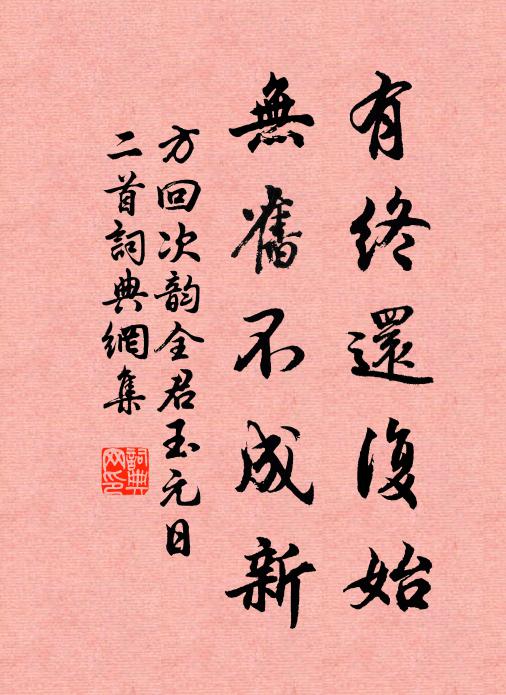 有終還復始
無舊不成新
方回次韵全君玉元日
二首詞典網集
詞典网印